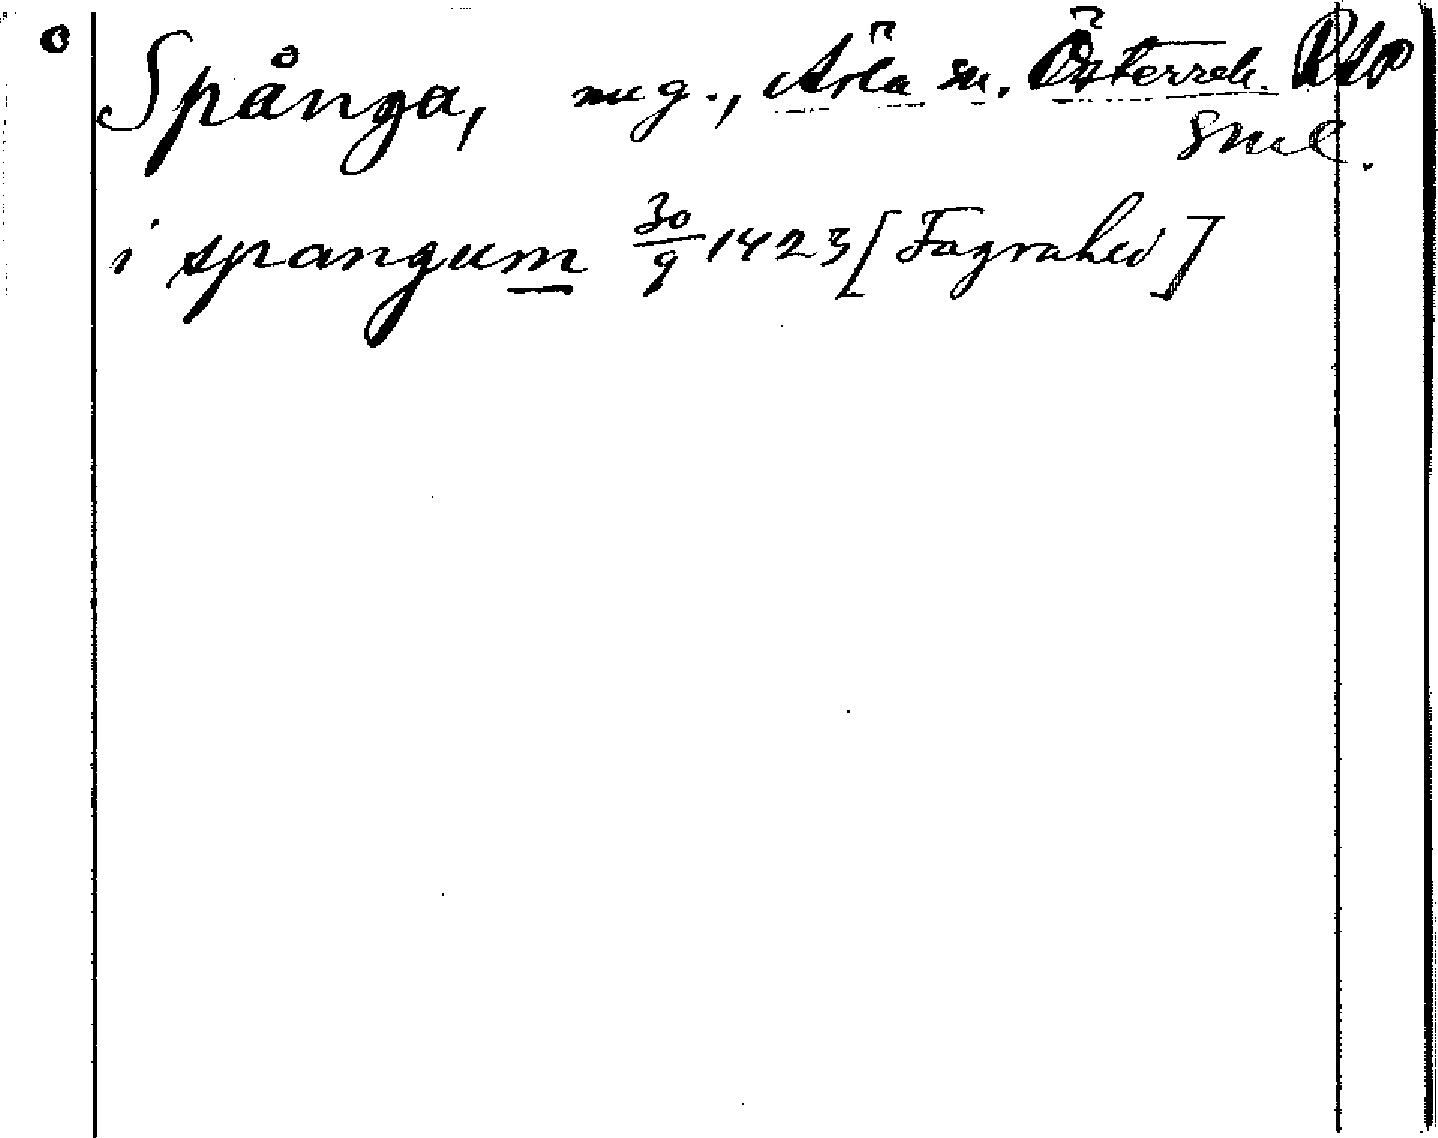 Spånga, mcg., Ärla sn. Österrek. RAP
Sml.
i spangum 30/9 1423 [Fagrahed]